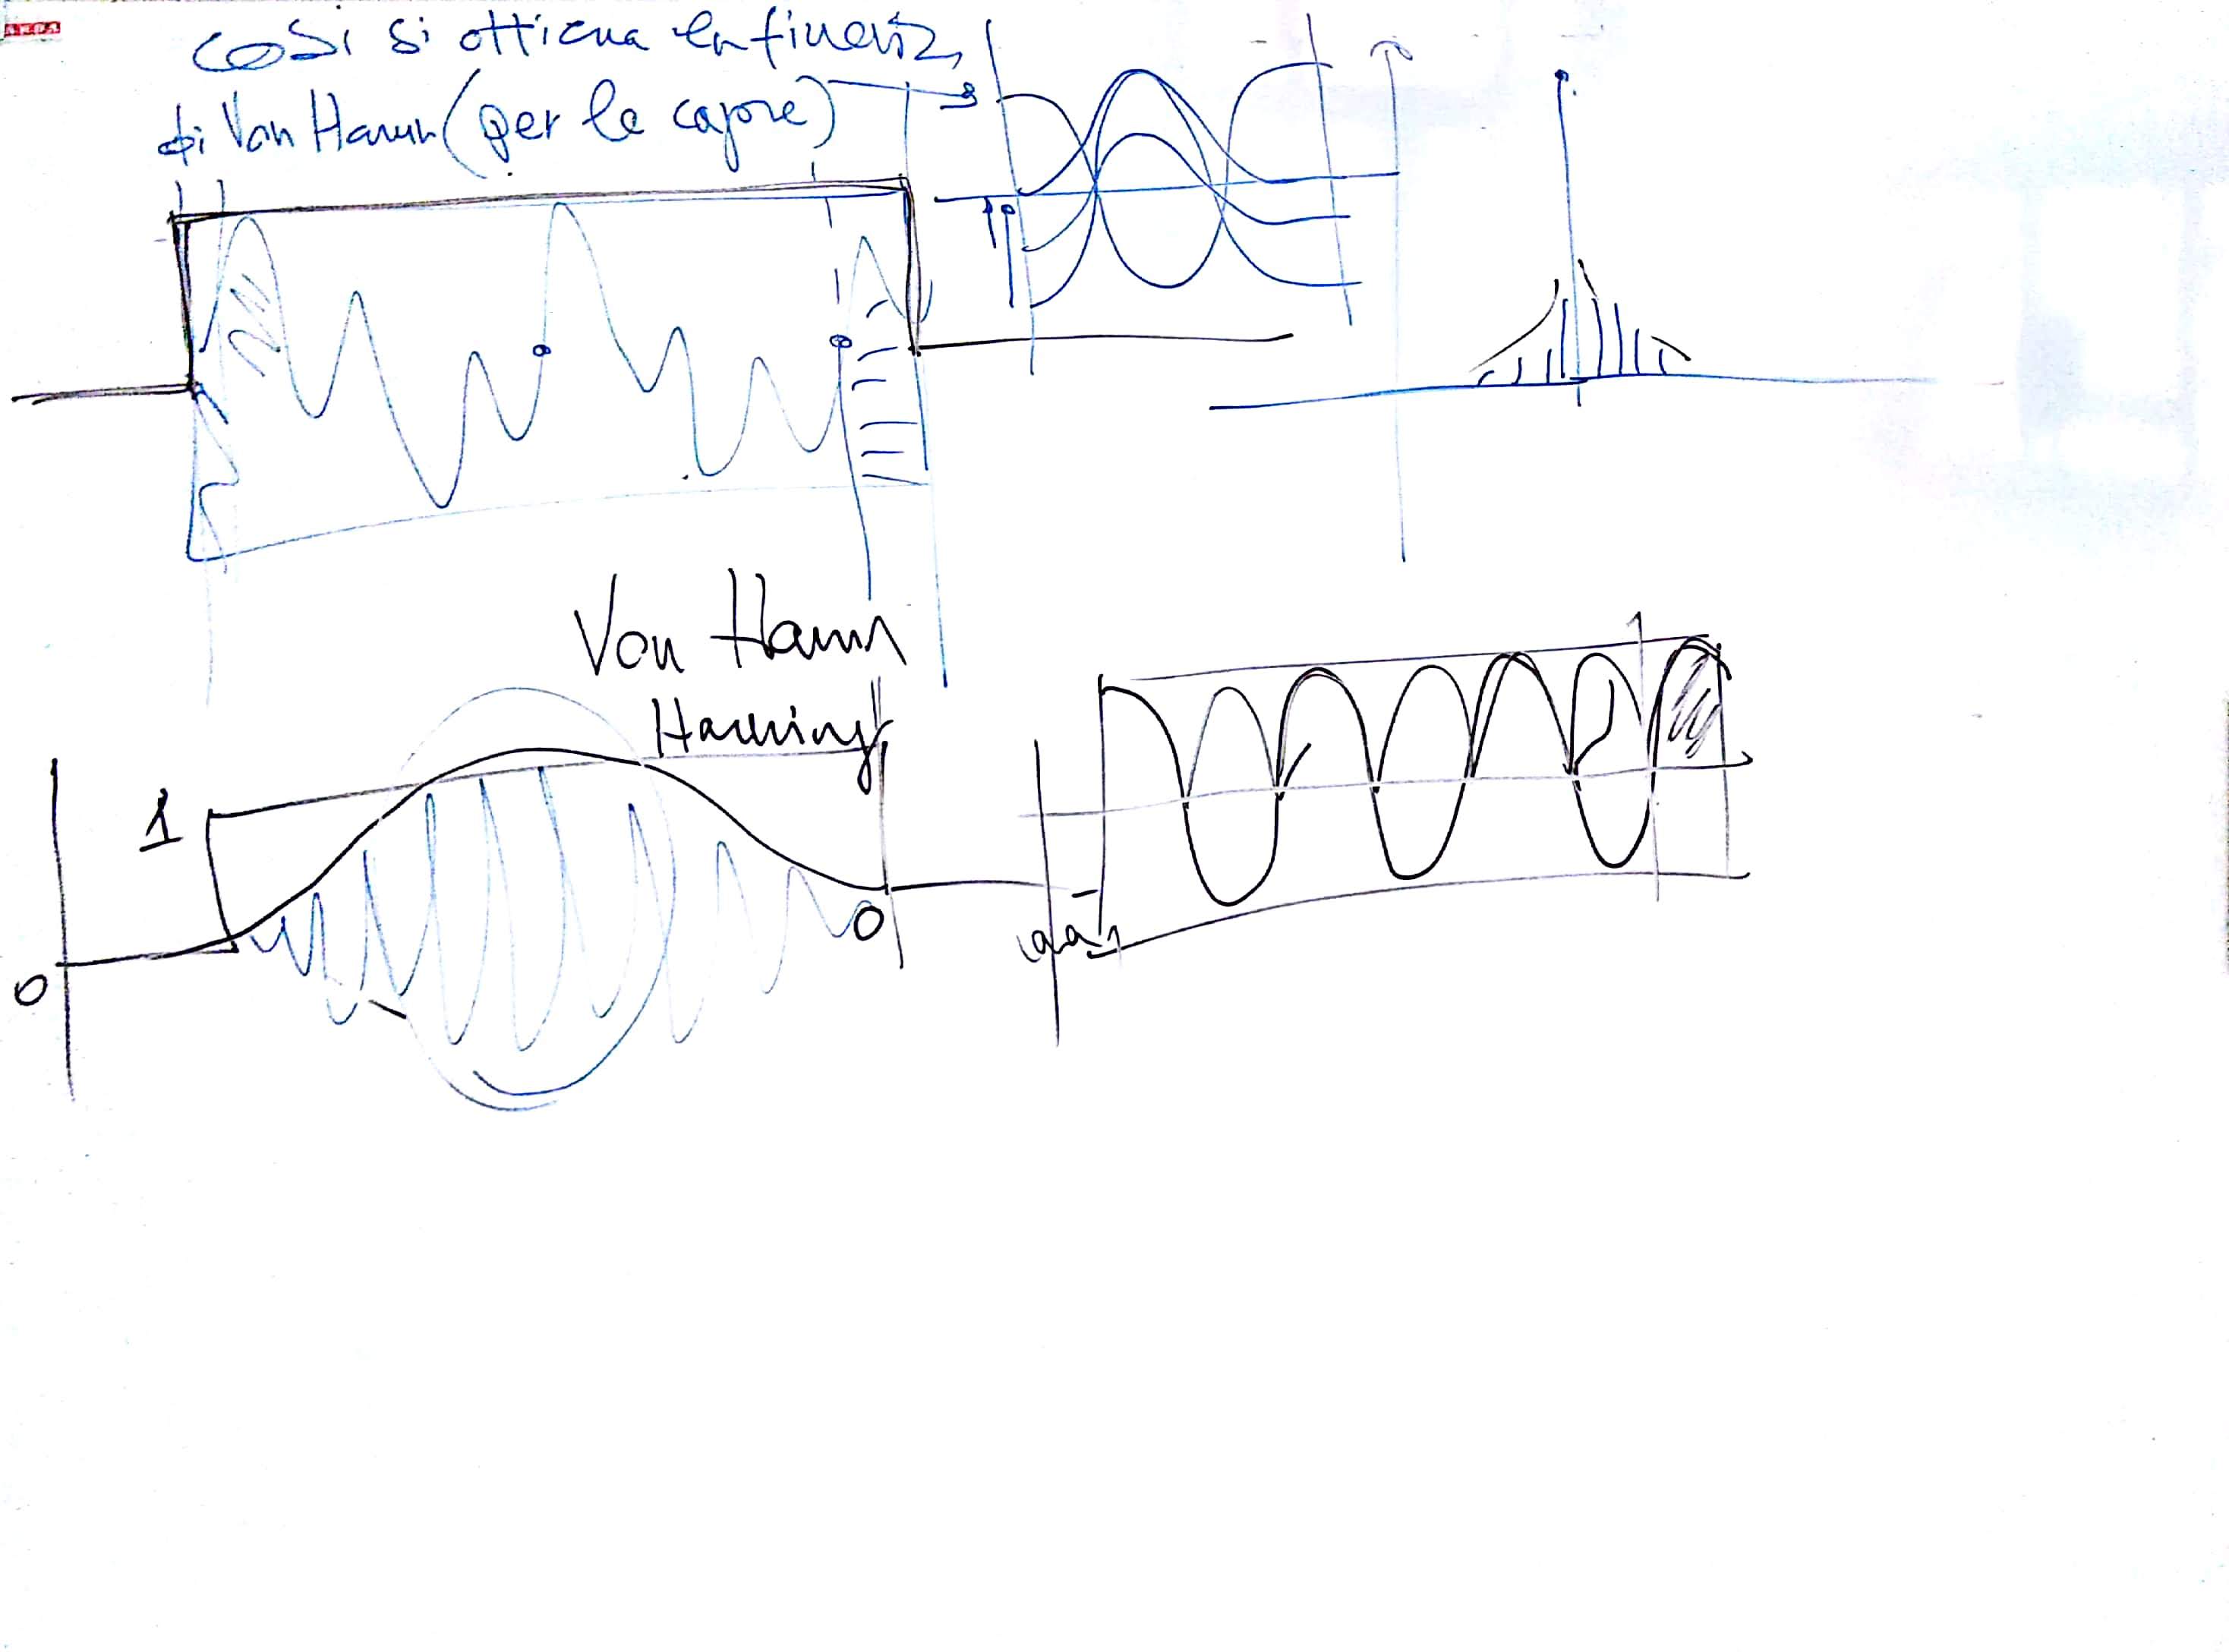 così si ottiene la finestra
di Von Hann (per le capre)
Von Hann
Hanning
1
1
0
0
-1